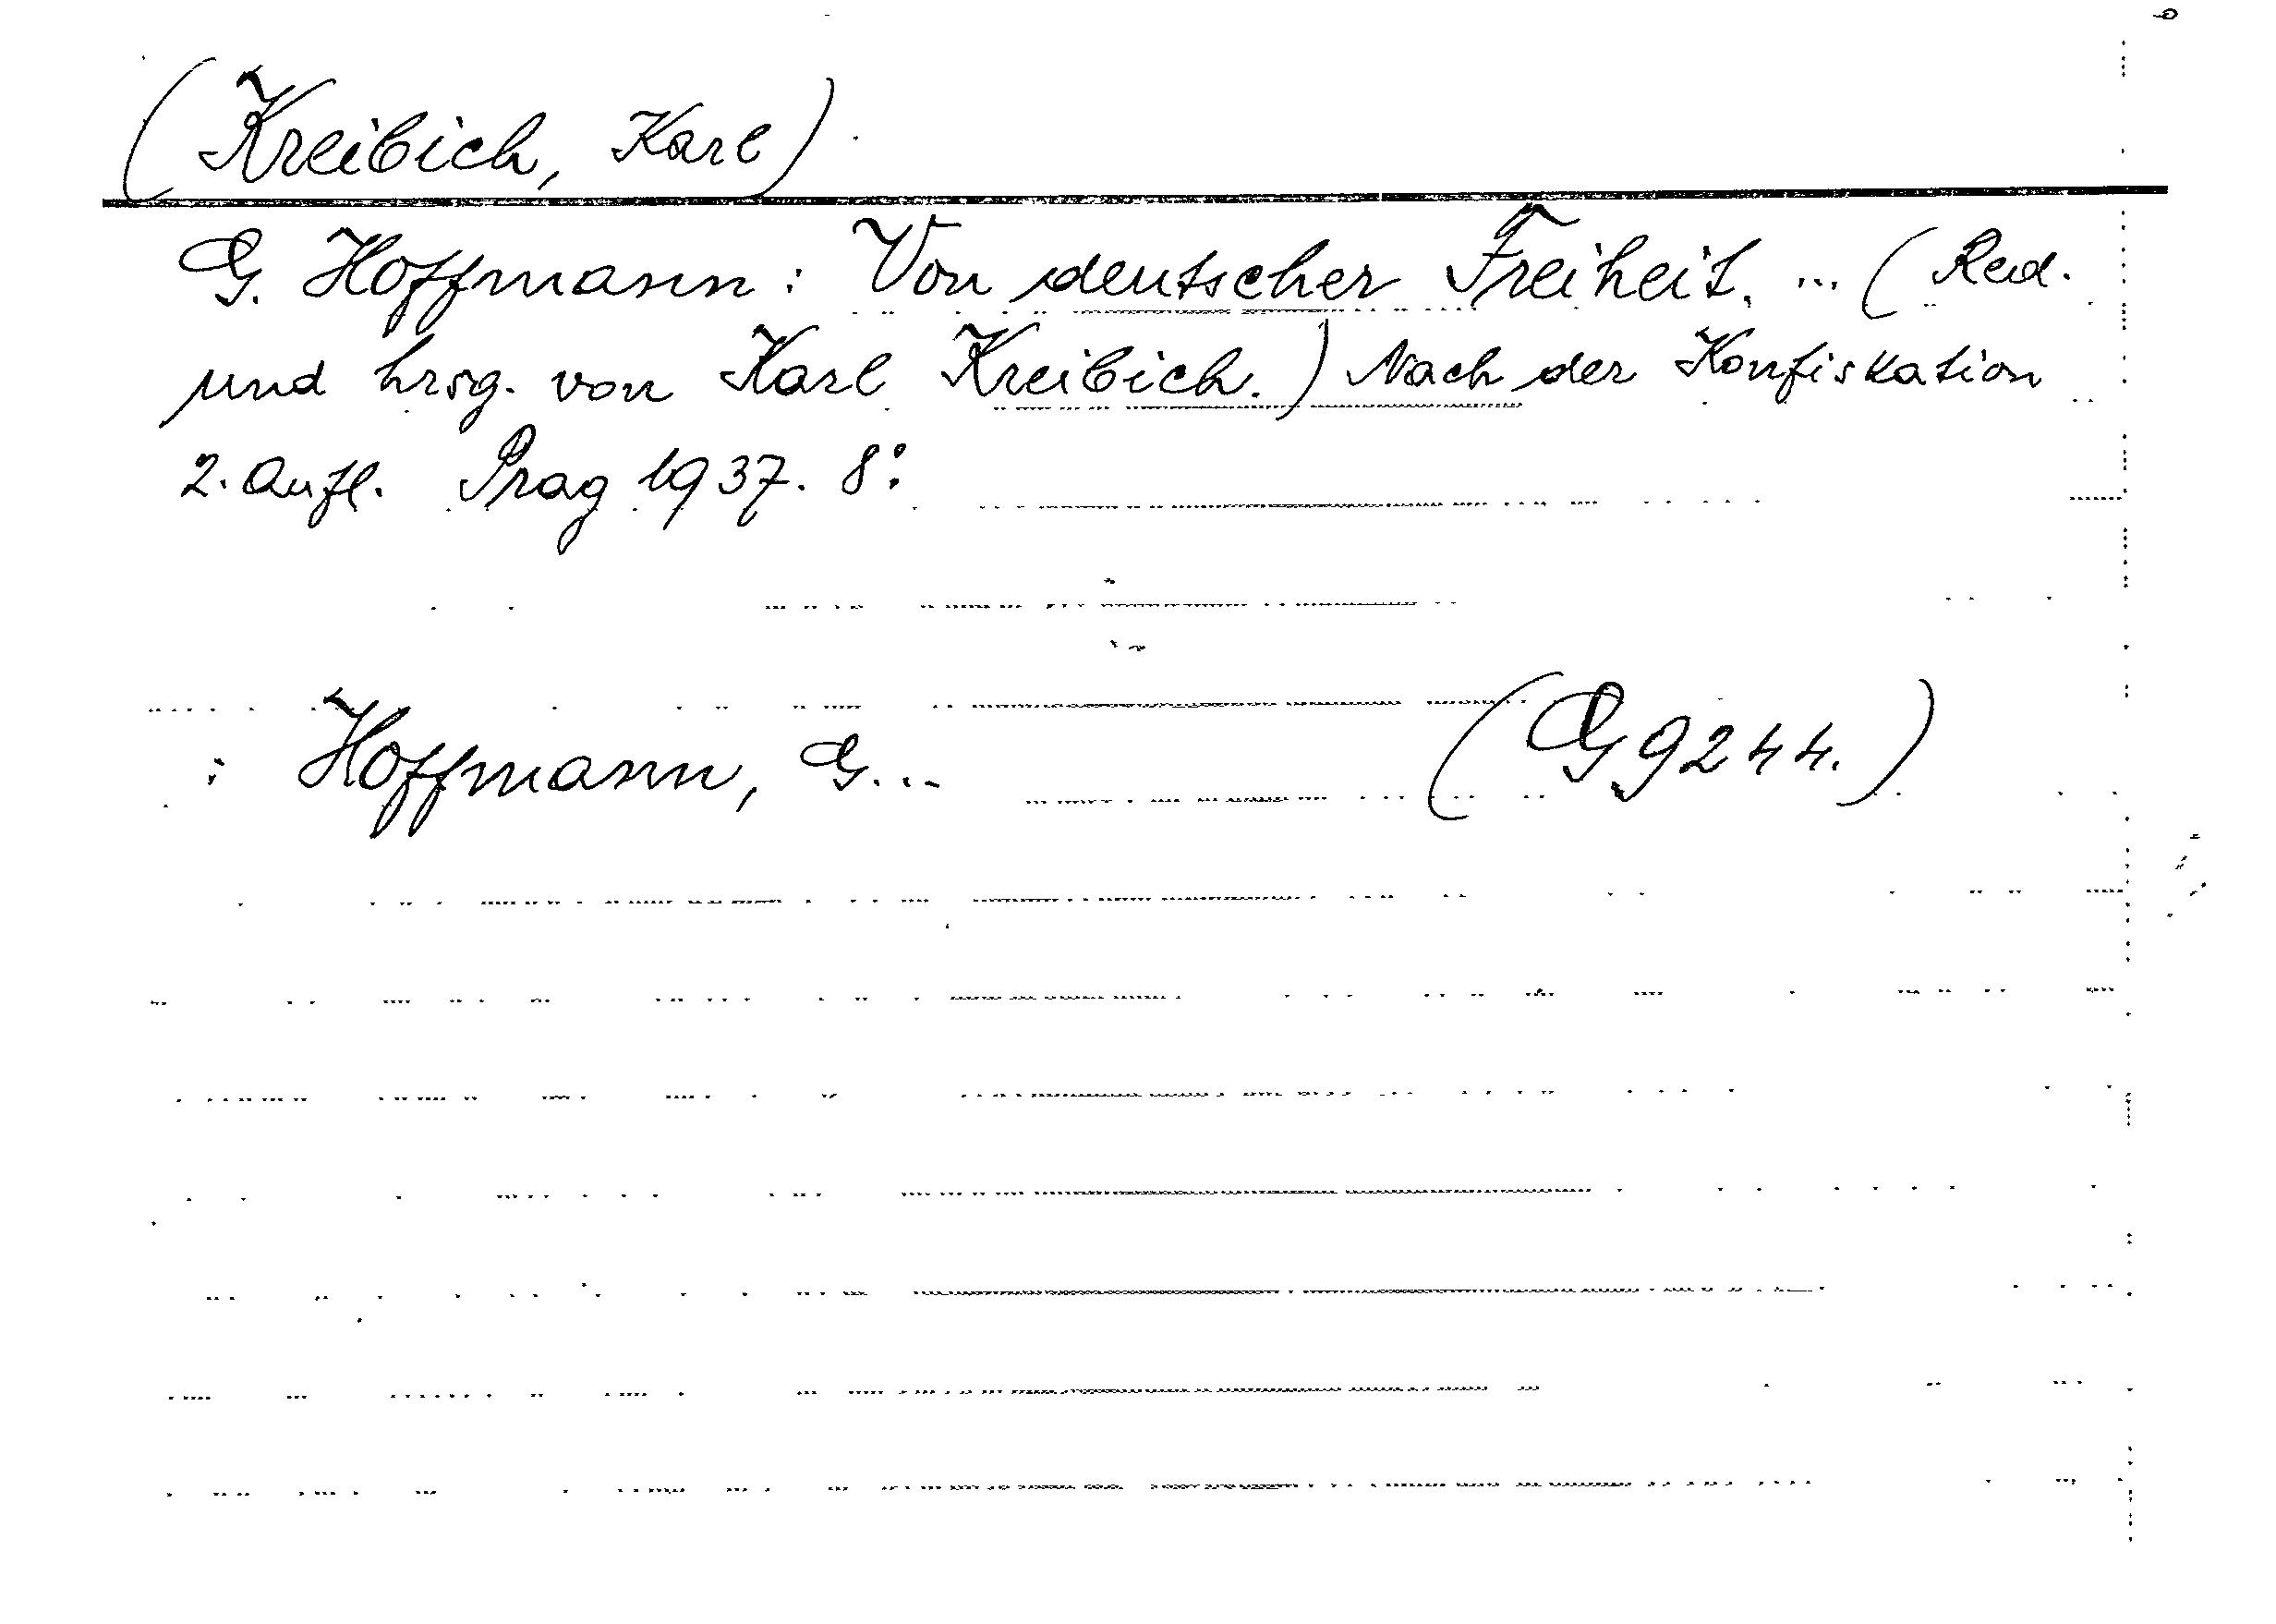 (Kreibich, Karl)
G. Hoffmann: Von deutscher Freiheit. ... (Red.
und hrsg. von Karl Kreibich.) Nach der Konfiskation
2. Aufl. Prag 1937. 8°.
: Hoffmann, G...
(G 9244.)